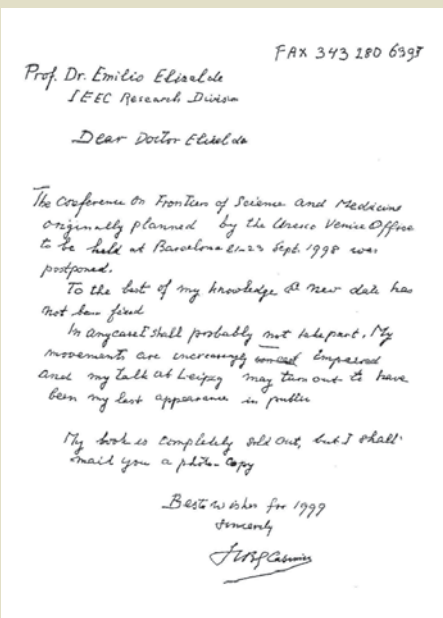 FAX 343 280 6395
Prof. Dr. Emilio Elizalde
IEEC Research Division
Dear Doctor Elizalde
The Conference on Frontiers of Science and Medicine
originally planned by the Unesco Venice Office
to be held at Barcelona 21-23 Sept. 1998 was
postponed.
To the best of my knowledge a new date has
not been fixed
In anycase I shall probably not take part. My
movements are increasingly impaired
and my talk at Leipzig may turn out to have
been my last appearance in public
My book is completely sold out, but I shall
mail you a photo-copy
Best wishes for 1999
Sincerely
HBG Casimir